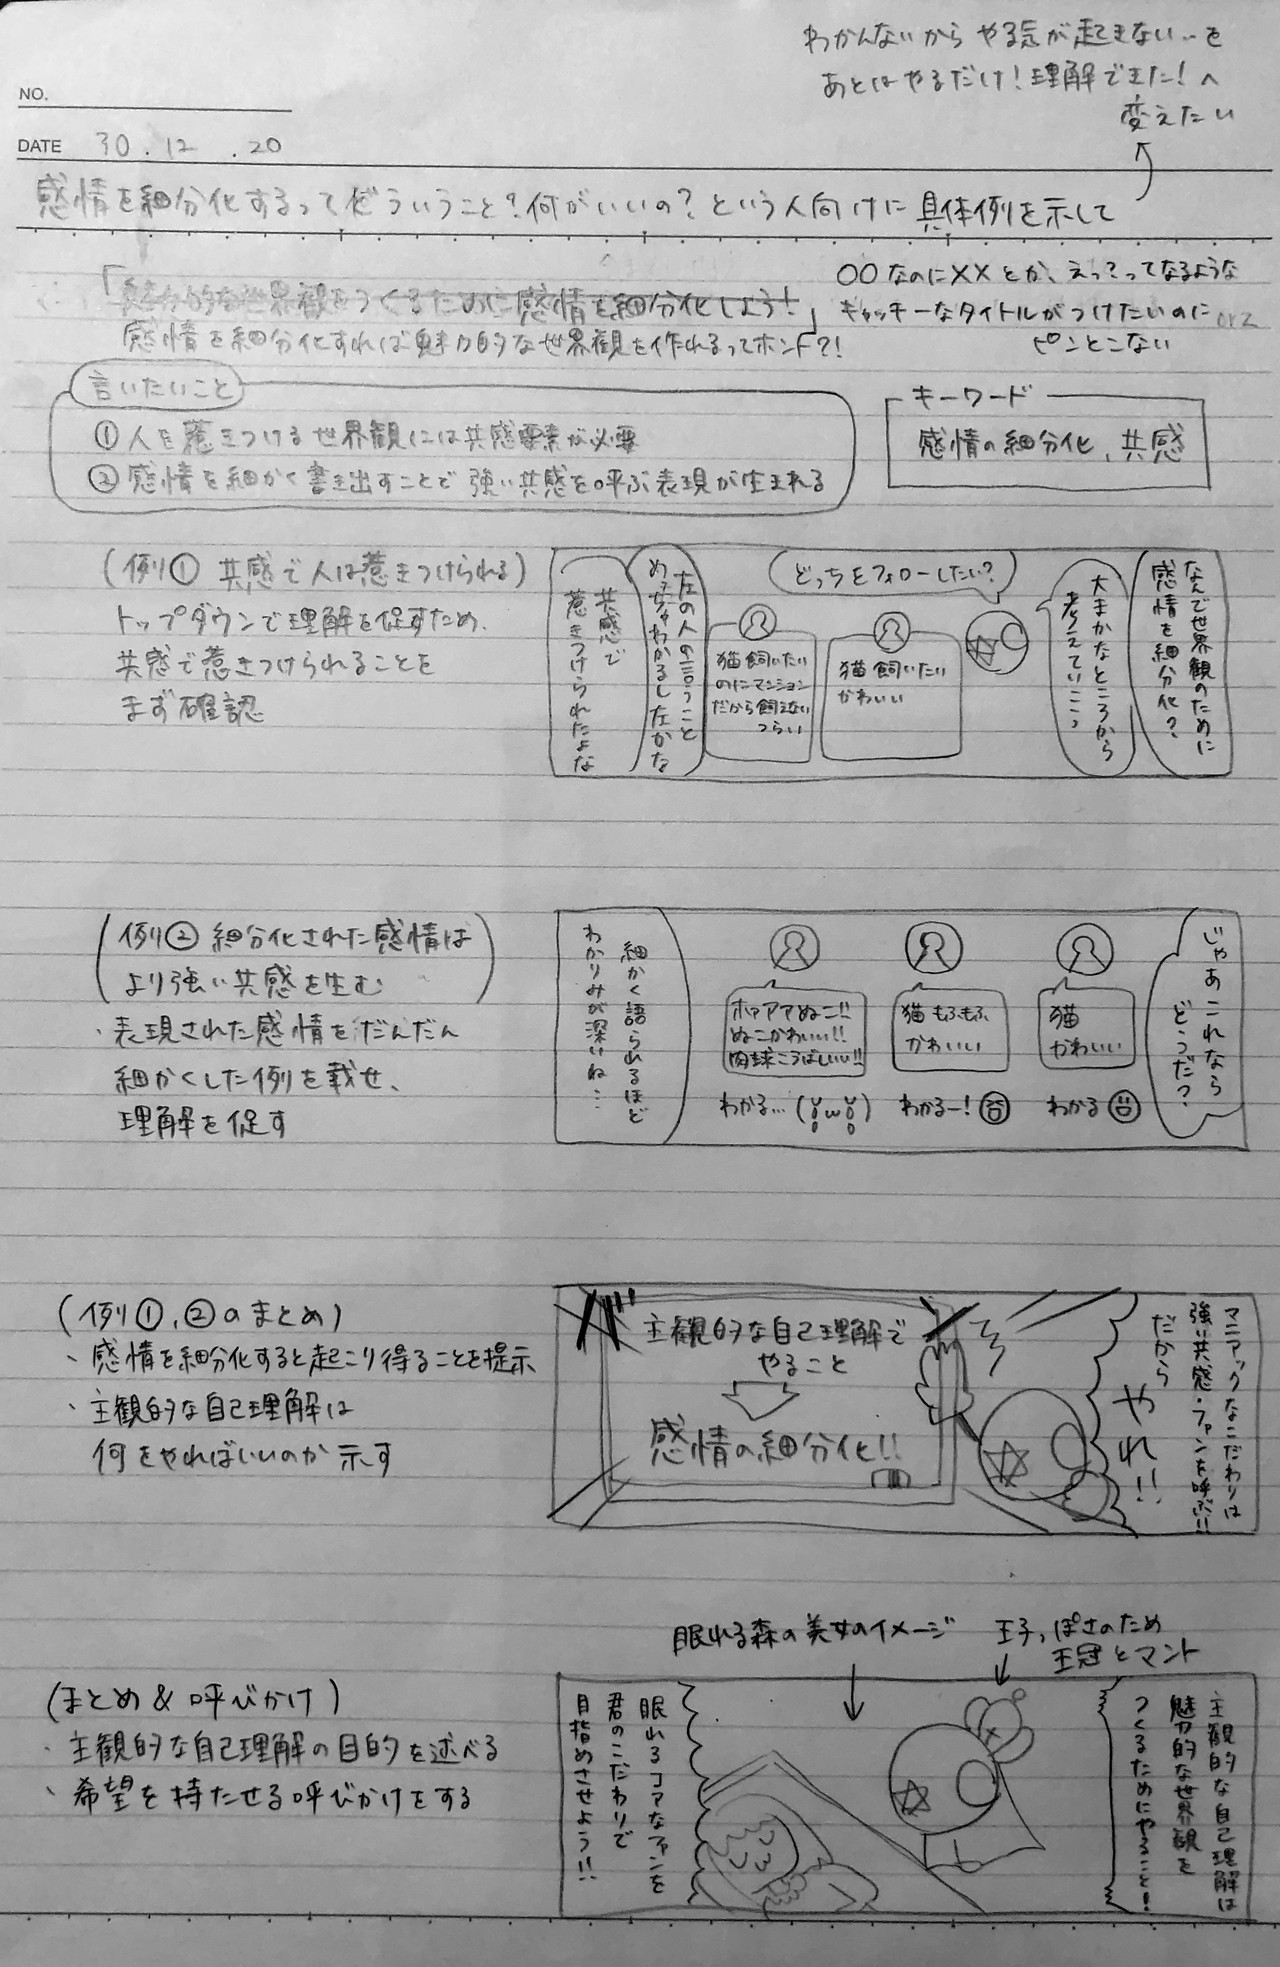 わかんないから やる気が起きない…を
あとはやるだけ!理解できた!へ
変えたい
NO.
DATE 30.12.20
感情を細分化するってどういうこと?何がいいの?という人向けに具体例を示して
「魅力的な世界観をつくるために感情を細分化しよう!」
感情を細分化すれば魅力的な世界観を作れるってホント?!
〇〇なのに××とか、えっ?ってなるような
キャッチーなタイトルがつけたいのにorz
ピンとこない
言いたいこと
①人を惹きつける世界観には共感要素が必要
②感情を細かく書き出すことで強い共感を呼ぶ表現が生まれる
キーワード
感情の細分化、共感
(例① 共感で人は惹きつけられる)
トップダウンで理解を促すため、
共感で惹きつけられることを
まず確認
なんで世界観のために
感情を細分化?
大まかなところから
考えていこう
どっちをフォローしたい?
猫飼いたい
かわいい
猫飼いたい
のにマンション
だから飼えない
つらい
左の人の言うこと
めっちゃわかるし左かな
共感で
惹きつけられたよな
(例② 細分化された感情は
より強い共感を生む)
・表現された感情をだんだん
細かくした例を載せ、
理解を促す
じゃあこれなら
どうだ?
猫
かわいい
わかる
猫もふもふ
かわいい
わかるー!
ホアアアぬこ!!
ぬこかわいい!!
肉球こうばしいい!!
わかる…
細かく語られるほど
わかりみが深いね…
(例①、②のまとめ)
・感情を細分化すると起こり得ることを提示
・主観的な自己理解は
何をやればいいのか示す
マニアックなこだわりは
強い共感・ファンを呼ぶ!!
だから
やれ!!
バ
主観的な自己理解で
やること
感情の細分化!!
眠れる森の美女のイメージ
王子っぽさのため
王冠とマント
(まとめ & 呼びかけ)
・主観的な自己理解の目的を述べる
・希望を持たせる呼びかけをする
主観的な自己理解は
魅力的な世界観を
つくるためにやること!
眠れるコアなファンを
君のこだわりで
目指めさせよう!!